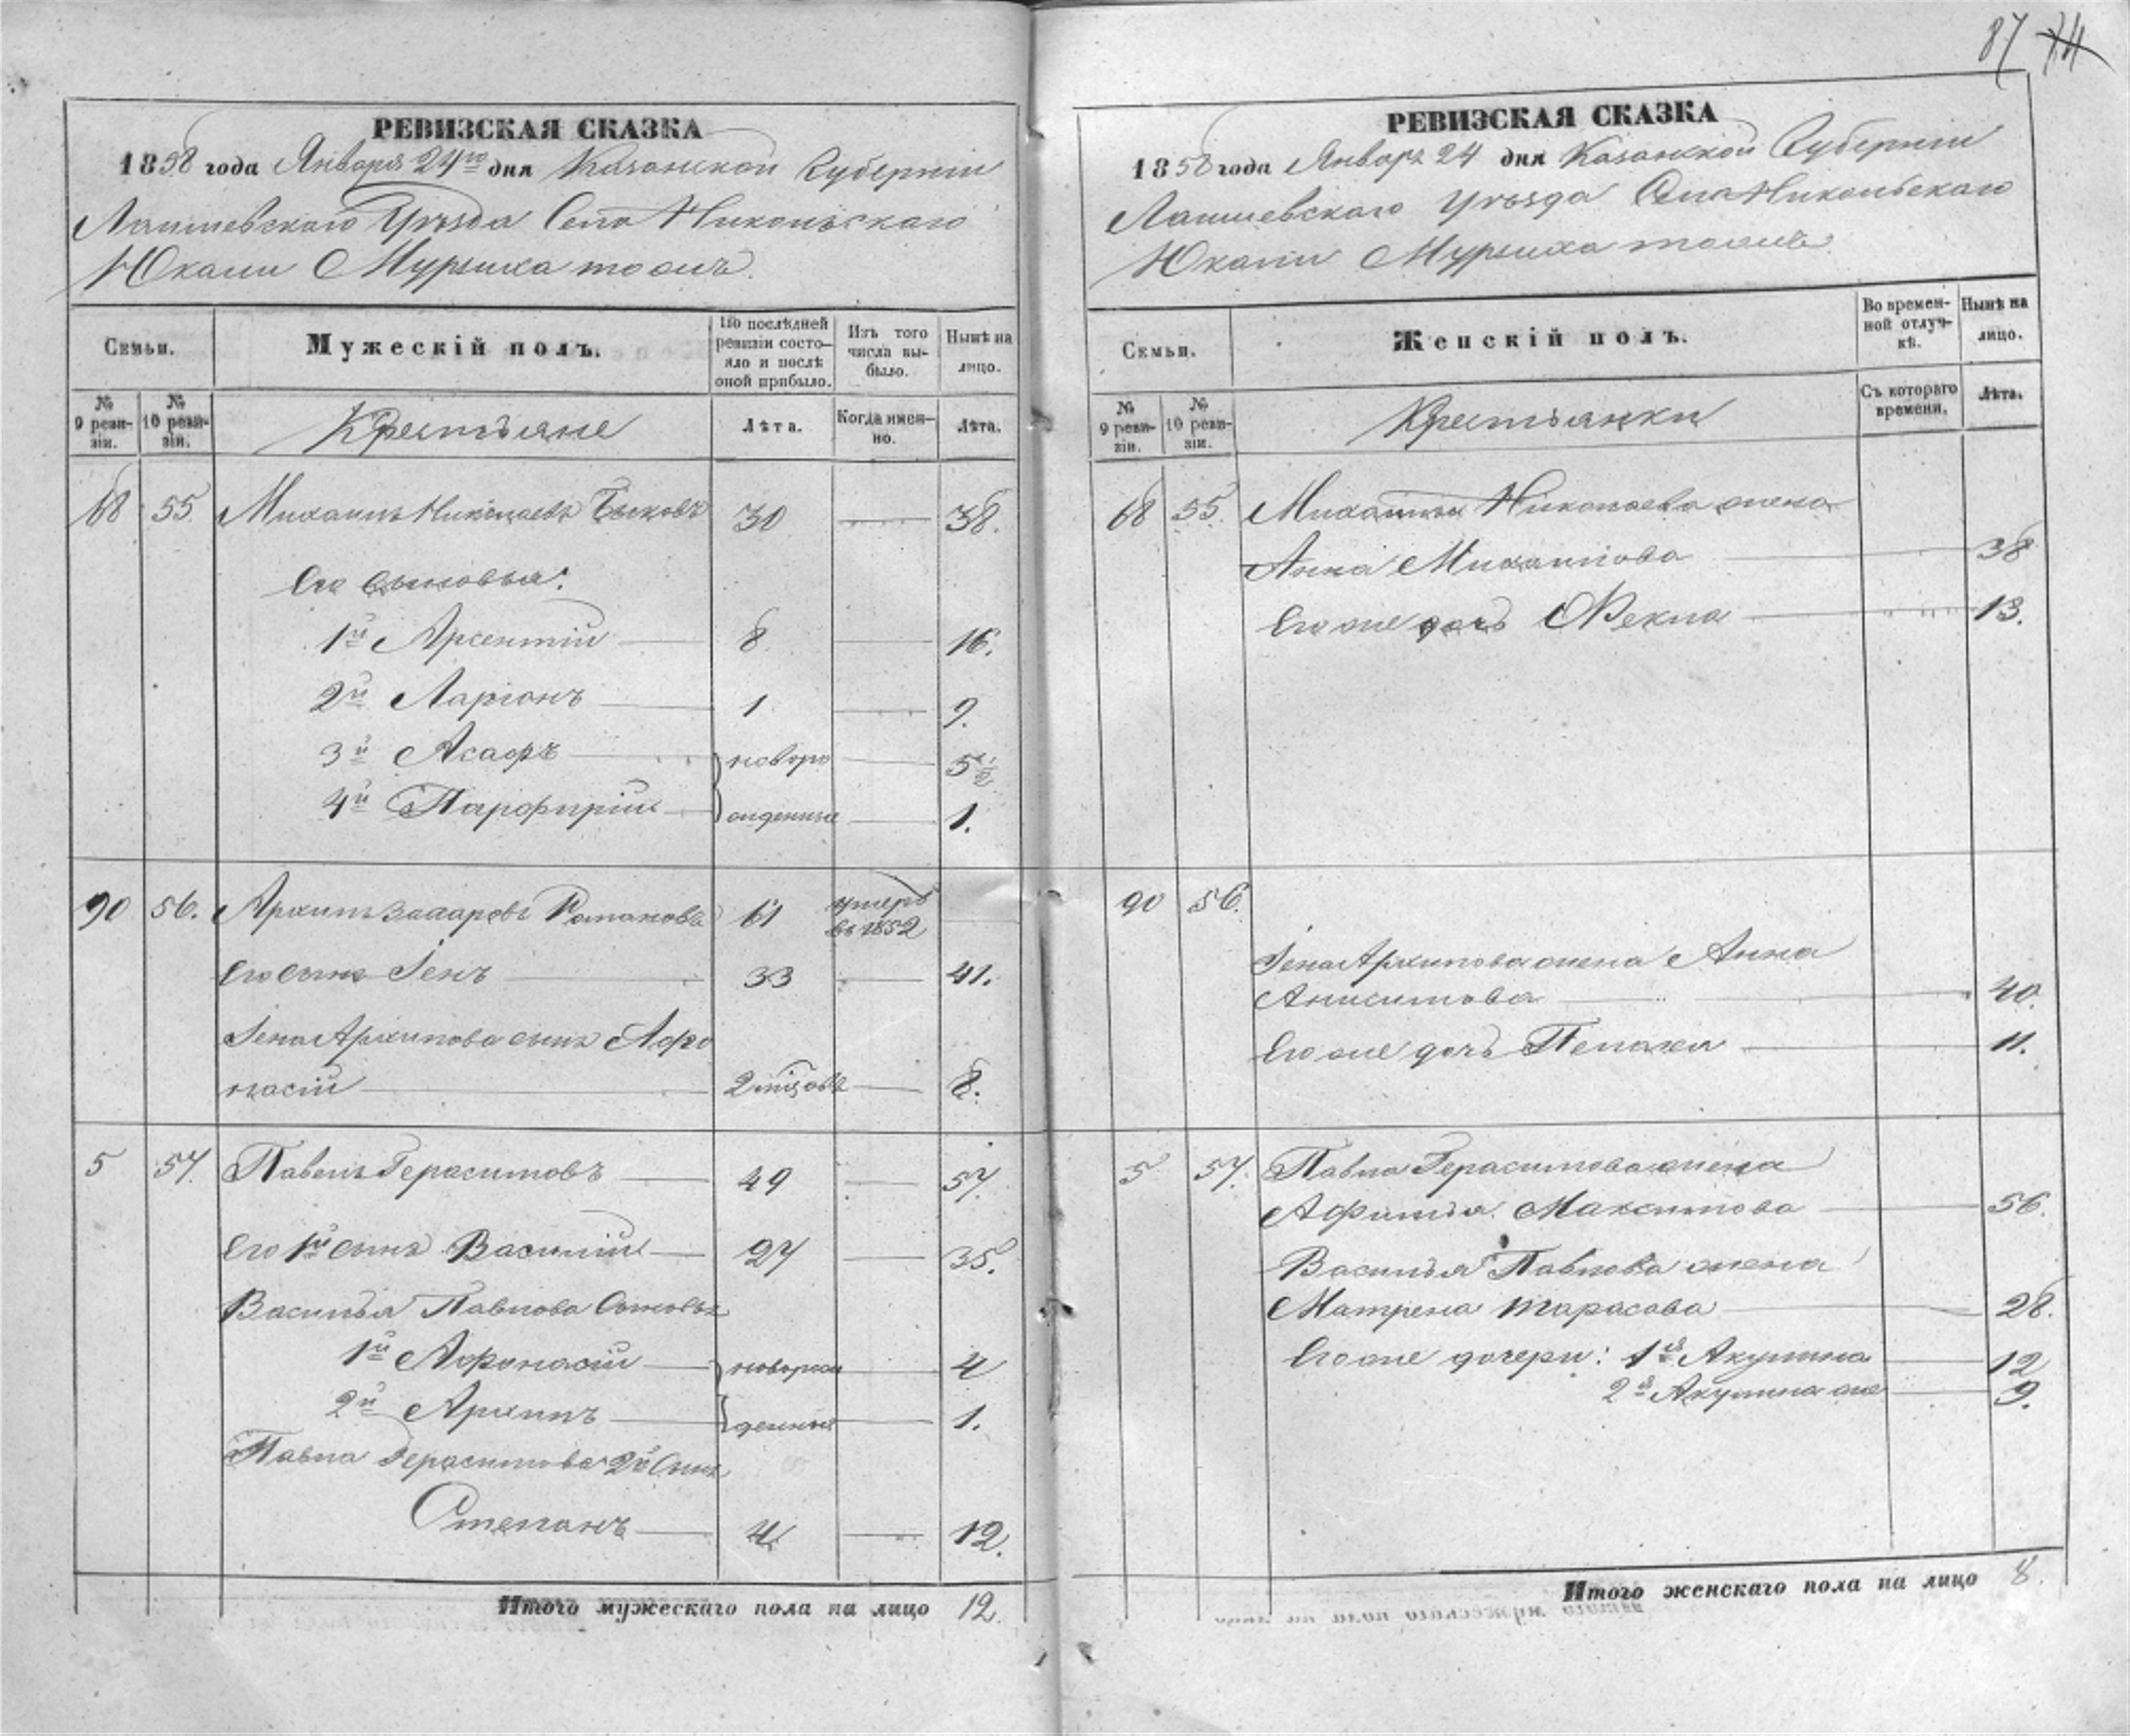 87 74
РЕВИЗСКАЯ СКАЗКА
1858 года Января 24го дня Казанской Губернiи
Лаишевскаго Уѣзда Села Никольскаго
Юкачи Мурзиха тожъ.
Семьи.
Мужескій полъ.
По послѣдней ревизіи состояло и послѣ оной прибыло.
Изъ того числа выбыло.
Нынѣ на лицо.
№ 9 ревизіи.
№ 10 ревизіи.
Крестьяне
Лѣта.
Когда именно.
Лѣта.
68 55 Михаилъ Николаевъ Быковъ 30 — 38.
Его сыновья:
1й Арсентій — 8 — 16.
2й Ларіонъ — 1 — 9.
3й Асафъ — новоро — 5 1/2
4й Парфирій — жденные — 1.
90 56. Архипъ Захаровъ Романовъ 61 умеръ въ 1852
Его сынъ Іенъ — 33 — 41.
Іена Архипова сынъ Афо
насій — 2 мѣсцовъ — 8.
5 57. Павелъ Герасимовъ — 49 — 57.
Его 1й сынъ Василій — 27 — 35.
Василья Павлова Сыновья
1й Афонасій — новорож — 4
2й Архипъ — денные — 1.
Павла Герасимова 2й Сынъ
Степанъ — 4 — 12.
Итого мужескаго пола на лицо 12.
РЕВИЗСКАЯ СКАЗКА
1858 года Января 24 дня Казанской Губерніи
Лаишевскаго Уѣзда Села Никольскаго
Юкачи Мурзиха тожъ
Семьи.
Женскій полъ.
Во временной отлучкѣ.
Нынѣ на лицо.
№ 9 ревизіи.
№ 10 ревизіи.
Крестьянки
Съ котораго времени.
Лѣта.
68 55. Михайлы Николаева жена
Анна Михайлова — 38
Его же дочь Фекла — 13.
90 56.
Іена Архипова жена Анна
Анисимова — 40.
Его же дочь Пелагея — 11.
5 57. Павла Герасимова жена
Афимья Максимова — 56.
Василья Павлова жена
Матрена Тарасова — 28.
Его же дочери: 1я Акулина — 12
2я Акулина же — 9.
Итого женскаго пола на лицо 8.